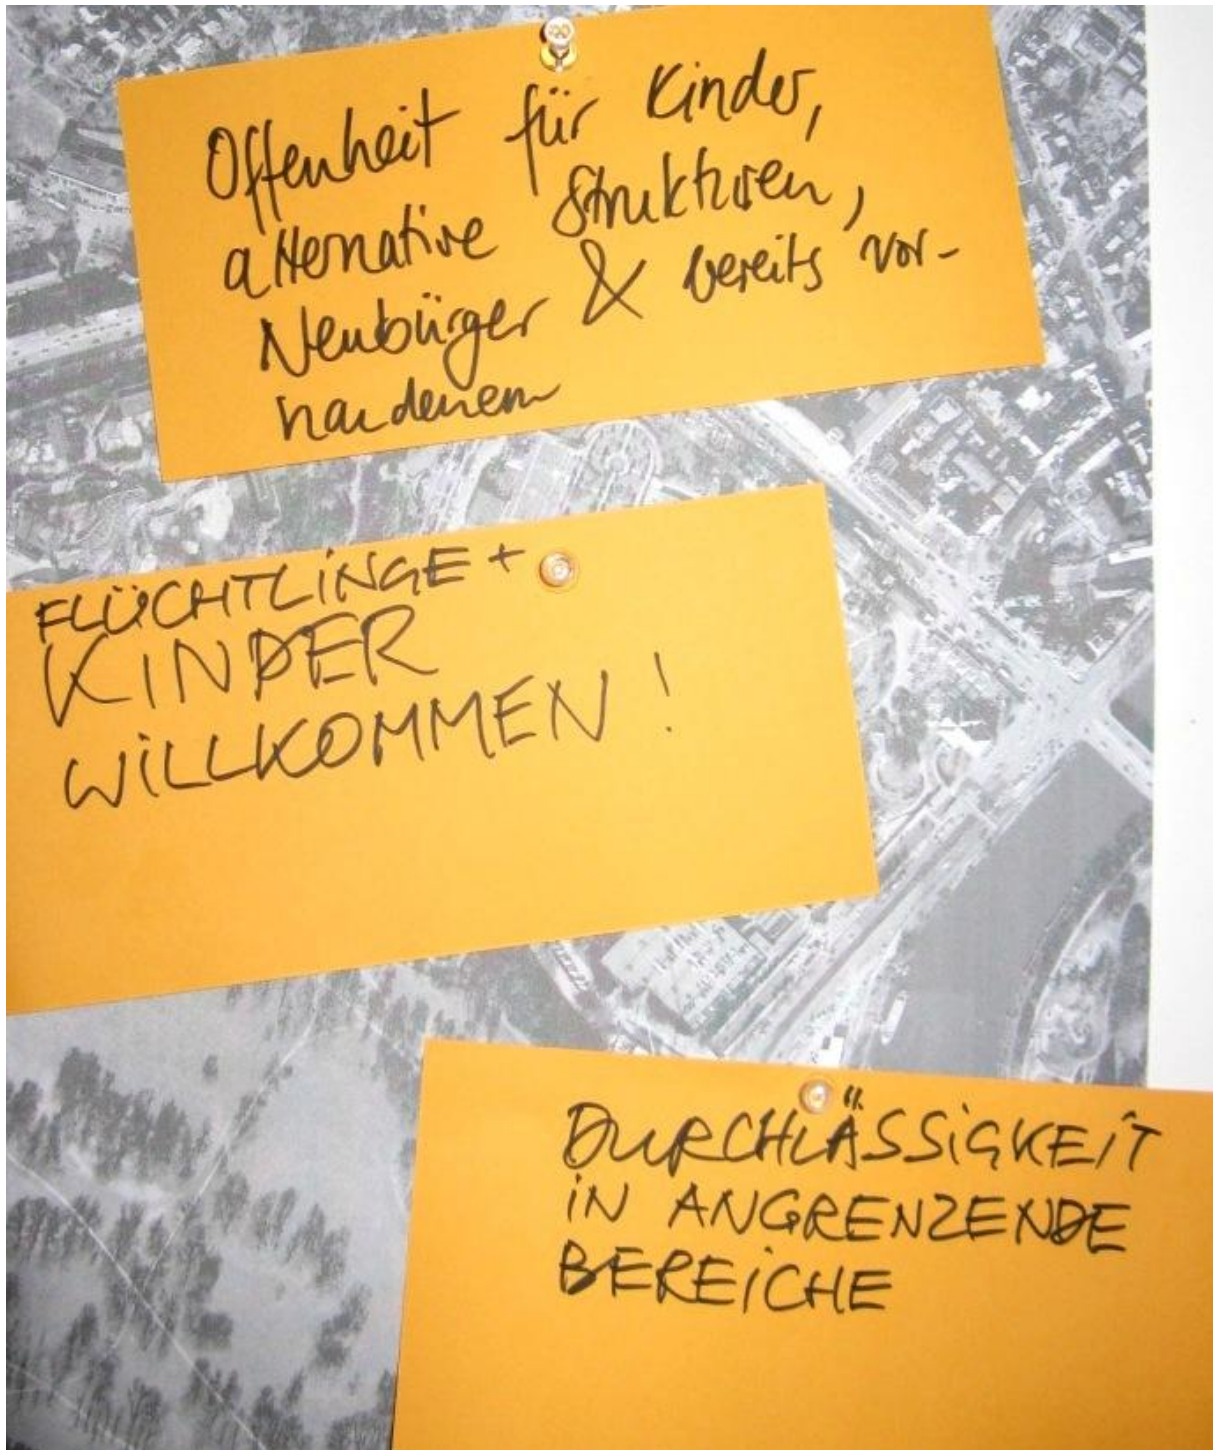 Offenheit für Kinder,
alternative Strukturen,
Neubürger & bereits vor-
handenem
FLÜCHTLINGE +
KINDER
WILLKOMMEN !
DURCHLÄSSIGKEIT
IN ANGRENZENDE
BEREICHE